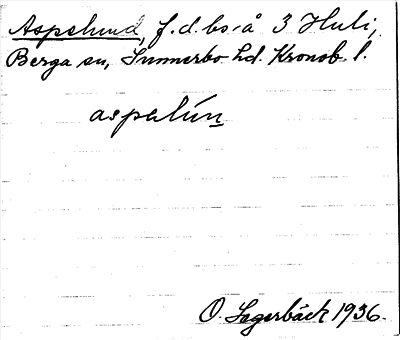 Aspelund, f.d. bs. å 3 Huli,
Berga sn, Sunnerbo hd. Kronob. l.
aspelún
O. Lagerbäck 1936.